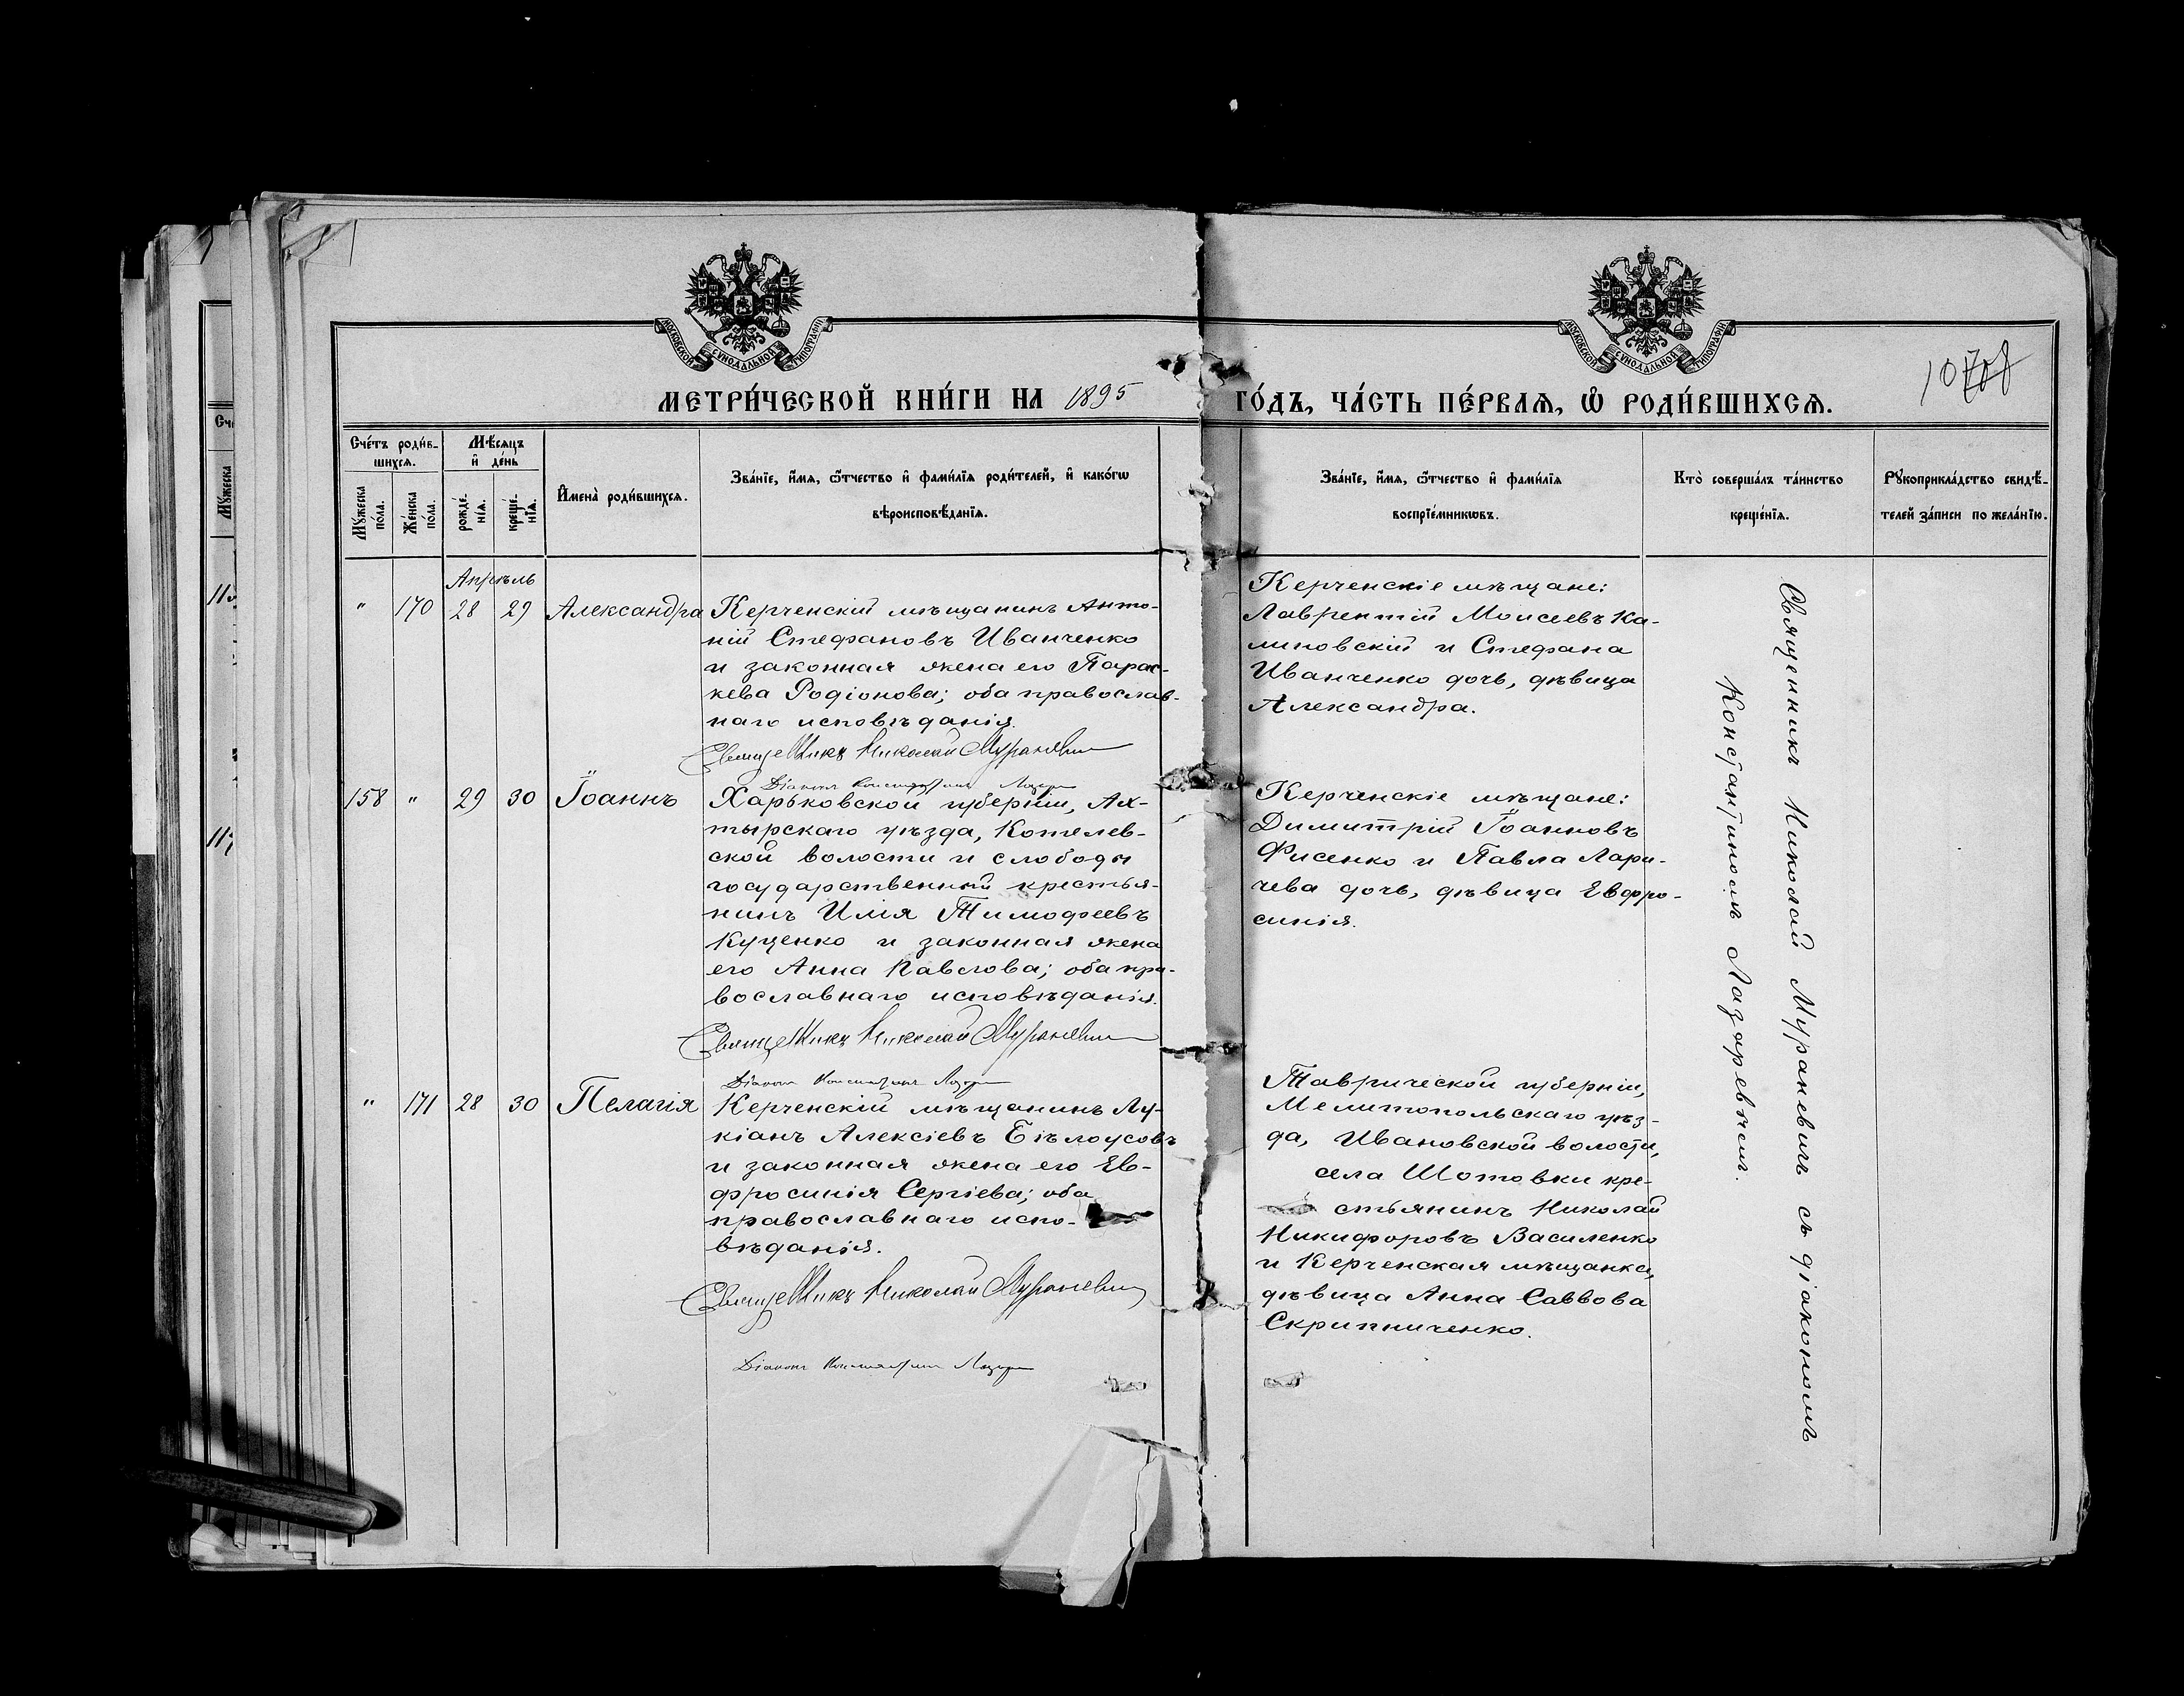 МОСКОВСКОЙ СѴНОДАЛЬНОЙ ТИПОГРАФІИ
МОСКОВСКОЙ СѴНОДАЛЬНОЙ ТИПОГРАФІИ
МЕТРИ́ЧЕСКОЙ КНИ́ГИ НА 1895 ГО́ДЪ, ЧА́СТЬ ПЕ́РВАЯ, Ѡ҆ РОДИ́ВШИХСЯ.
Сче́тъ роди́в-
шихся.
Мꙋ́жеска
по́ла.
Же́нска
по́ла.
Мѣ́сяцъ
и҆ де́нь
рожде́-
нїя.
креще́-
нїя.
И҆мена̀ роди́вшихся.
Зва́нїе, и҆́мя, ѻ҆́тчество и҆ фами́лїя роди́телей, и҆ како́гѡ
вѣроисповѣ́данїя.
Зва́нїе, и҆́мя, ѻ҆́тчество и҆ фами́лїя
воспрїе́мникѡвъ.
Кто̀ соверша́лъ та́инство
креще́нїя.
Рꙋкоприкла́дство свидѣ́-
телей за́писи по жела́нїю.
Апрѣль
" 170 28 29 Александра
Керченскій мѣщанинъ Анто-
ній Стефановъ Иванченко
и законная жена его Парас-
кева Родіонова; оба православ-
наго исповѣданія.
Священникъ Николай Мураневич
Діаконъ Константинъ
Керченскіе мѣщане:
Лаврентій Моисеевъ Ка-
линовскій и Стефана
Иванченко дочь, дѣвица
Александра.
158 " 29 30 Іоаннъ
Харьковской губерніи, Ах-
тырскаго уѣзда, Котелев-
ской волости и слободы
государственный крестья-
нинъ Илія Тимофеевъ
Куценко и законная жена
его Анна Павлова; оба пра-
вославнаго исповѣданія.
Священникъ Николай Мураневич
Діаконъ Константинъ
Керченскіе мѣщане:
Димитрій Іоанновъ
Фисенко и Павла Лари-
чева дочь, дѣвица Евфро-
синія.
" 171 28 30 Пелагія
Керченскій мѣщанинъ Лу-
кіанъ Алексіевъ Бѣлоусовъ
и законная жена его Ев-
фросинія Сергіева; оба
православнаго испо-
вѣданія.
Священникъ Николай Мураневич
Діаконъ Константинъ
Таврической губерніи,
Мелитопольскаго уѣз-
да, Ивановской волости,
села Шотовки кре-
стьянинъ Николай
Никифоровъ Василенко
и Керченская мѣщанка,
дѣвица Анна Саввова
Скрипниченко.
Священникъ Николай Мураневичъ съ діакономъ
Константиномъ Лазаревичемъ.